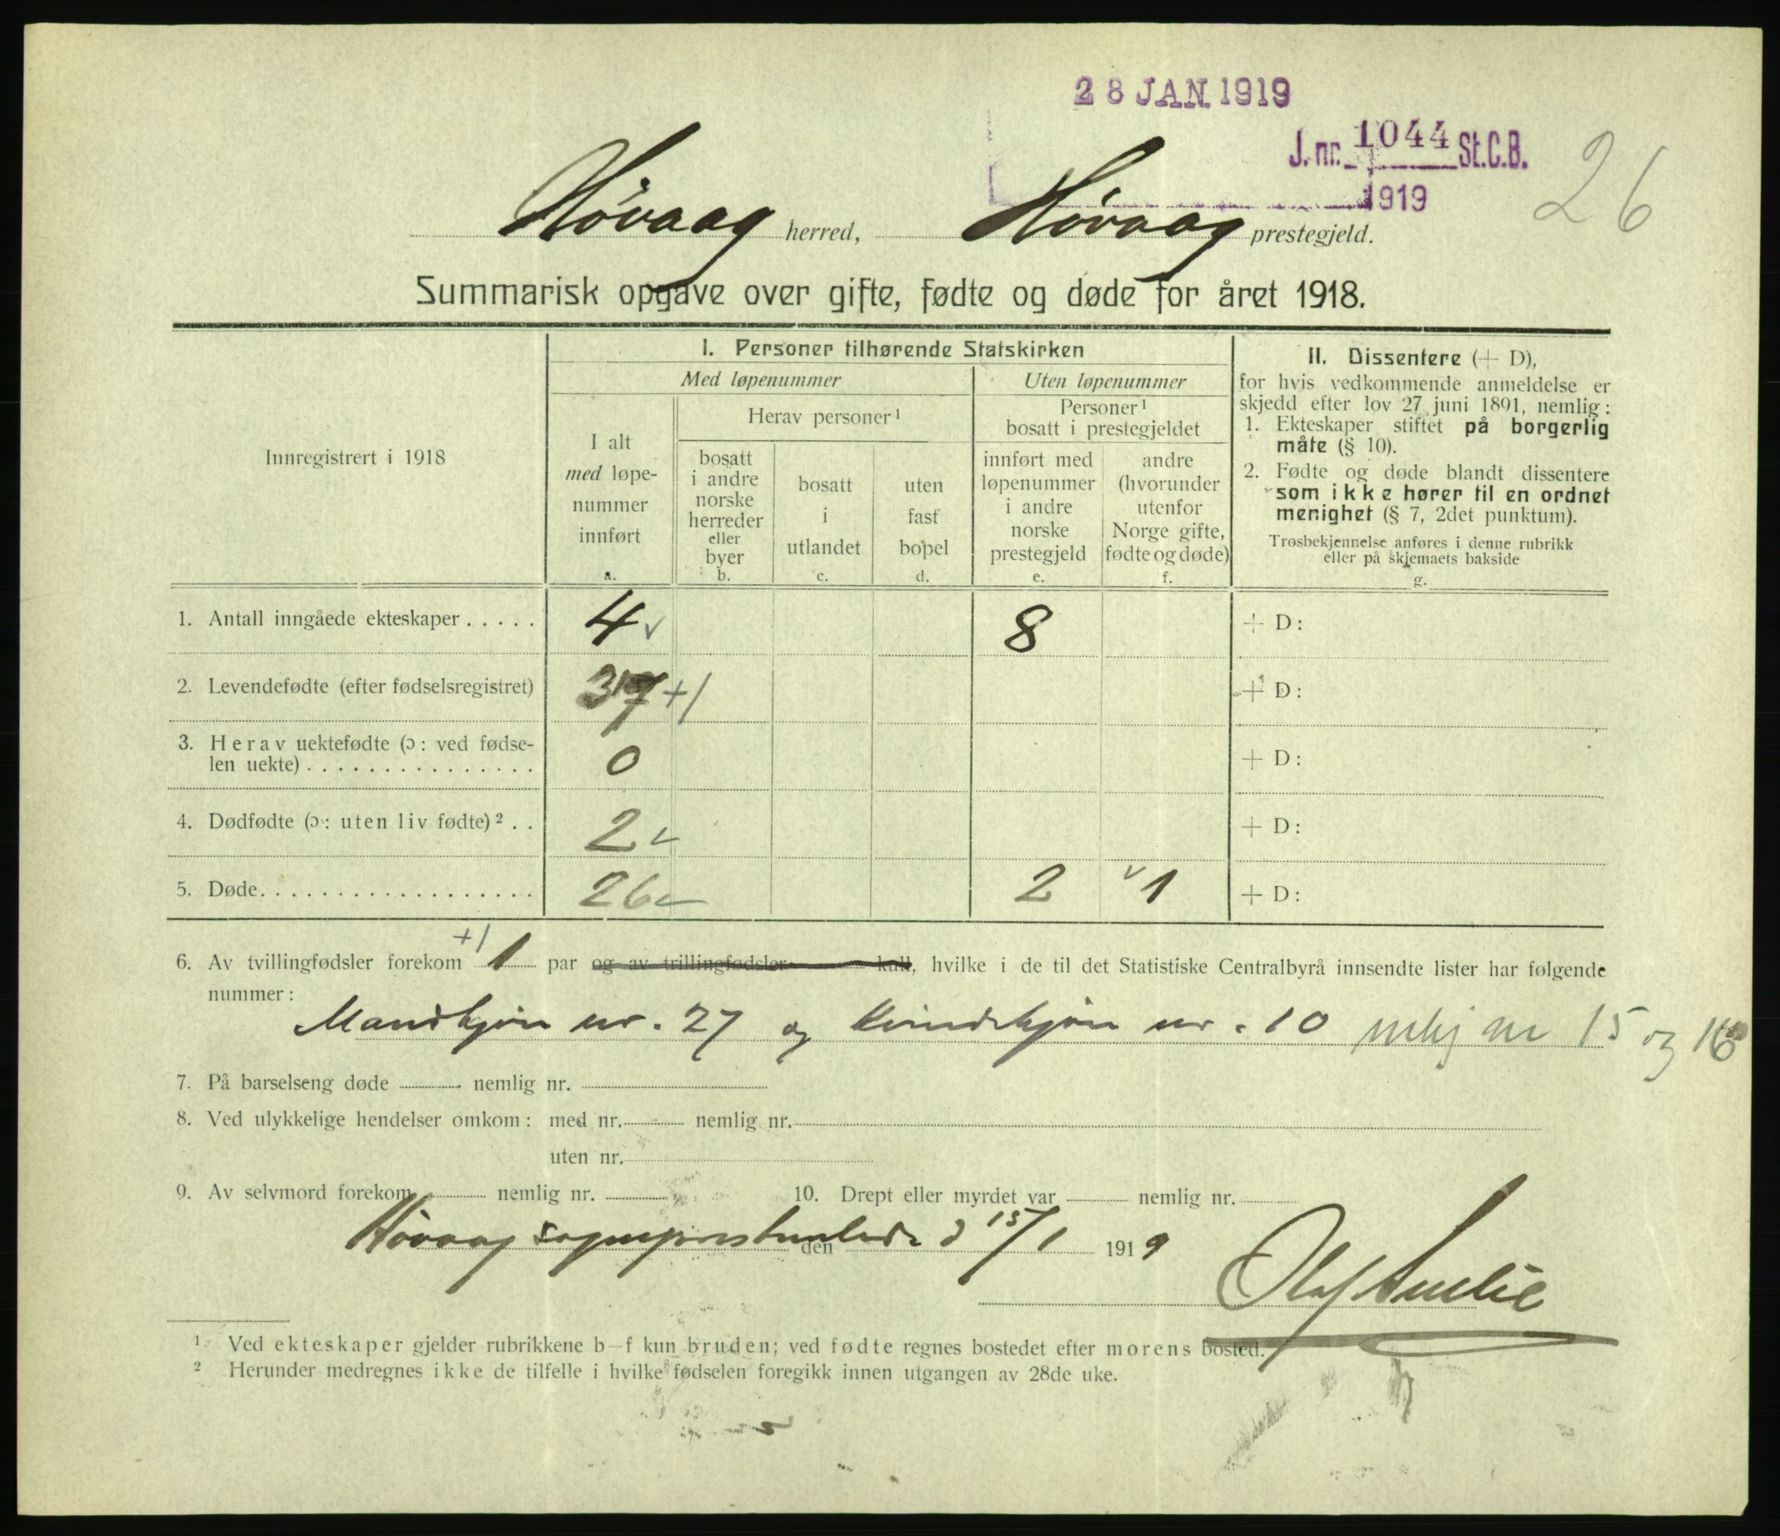 28 JAN. 1919
J. nr. 1044 St.C.B.
1919
26
Høvaag herred, Høvaag prestegjeld.
Summarisk opgave over gifte, fødte og døde for året 1918.
Innregistrert i 1918
I. Personer tilhørende Statskirken
Med løpenummer
Uten løpenummer
I alt
med løpe-
nummer
innført
a.
Herav personer ¹
bosatt
i andre
norske
herreder
eller
byer
b.
bosatt
i
utlandet
c.
uten
fast
bopel
d.
Personer ¹
bosatt i prestegjeldet
innført med
løpenummer
i andre
norske
prestegjeld
e.
andre
(hvorunder
utenfor
Norge gifte,
fødte og døde)
f.
II. Dissentere (+ D),
for hvis vedkommende anmeldelse er
skjedd efter lov 27 juni 1891, nemlig:
1. Ekteskaper stiftet på borgerlig
måte (§ 10).
2. Fødte og døde blandt dissentere
som ikke hører til en ordnet
menighet (§ 7, 2det punktum).
Trosbekjennelse anføres i denne rubrikk
eller på skjemaets bakside
g.
1. Antall inngåede ekteskaper ..... 4 8 + D:
2. Levendefødte (efter fødselsregistret) 37 +1 + D:
3. Herav uektefødte (ɔ: ved fødse-
len uekte) ............... 0 + D:
4. Dødfødte (ɔ: uten liv fødte) ² .. 2 + D:
5. Døde .................. 26 2 1 + D:
+1
6. Av tvillingfødsler forekom 1 par og av trillingfødsler kull, hvilke i de til det Statistiske Centralbyrå innsendte lister har følgende
nummer:
Mandkjøn nr. 27 og Kvindekjøn nr. 10 mkj nr 15 og 16
7. På barselseng døde nemlig nr.
8. Ved ulykkelige hendelser omkom: med nr. nemlig nr.
uten nr.
9. Av selvmord forekom nemlig nr. 10. Drept eller myrdet var nemlig nr.
Høvaag den 15/1 1919
Olaf
¹ Ved ekteskaper gjelder rubrikkene b–f kun bruden; ved fødte regnes bostedet efter morens bosted.
² Herunder medregnes ikke de tilfelle i hvilke fødselen foregikk innen utgangen av 28de uke.